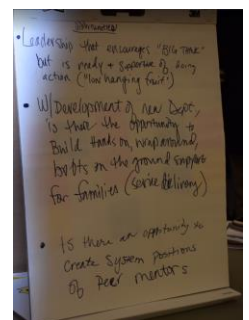 • Leadership that encourages "BIG TALK"
but is ready & supportive of doing
action ("low hanging fruit")
• W/Development of new Dept,
is there the opportunity to
Build Hands on, wraparound,
boots on the ground support
for families (service delivery)
• Is there an opportunity to
Create System positions
of Peer mentors